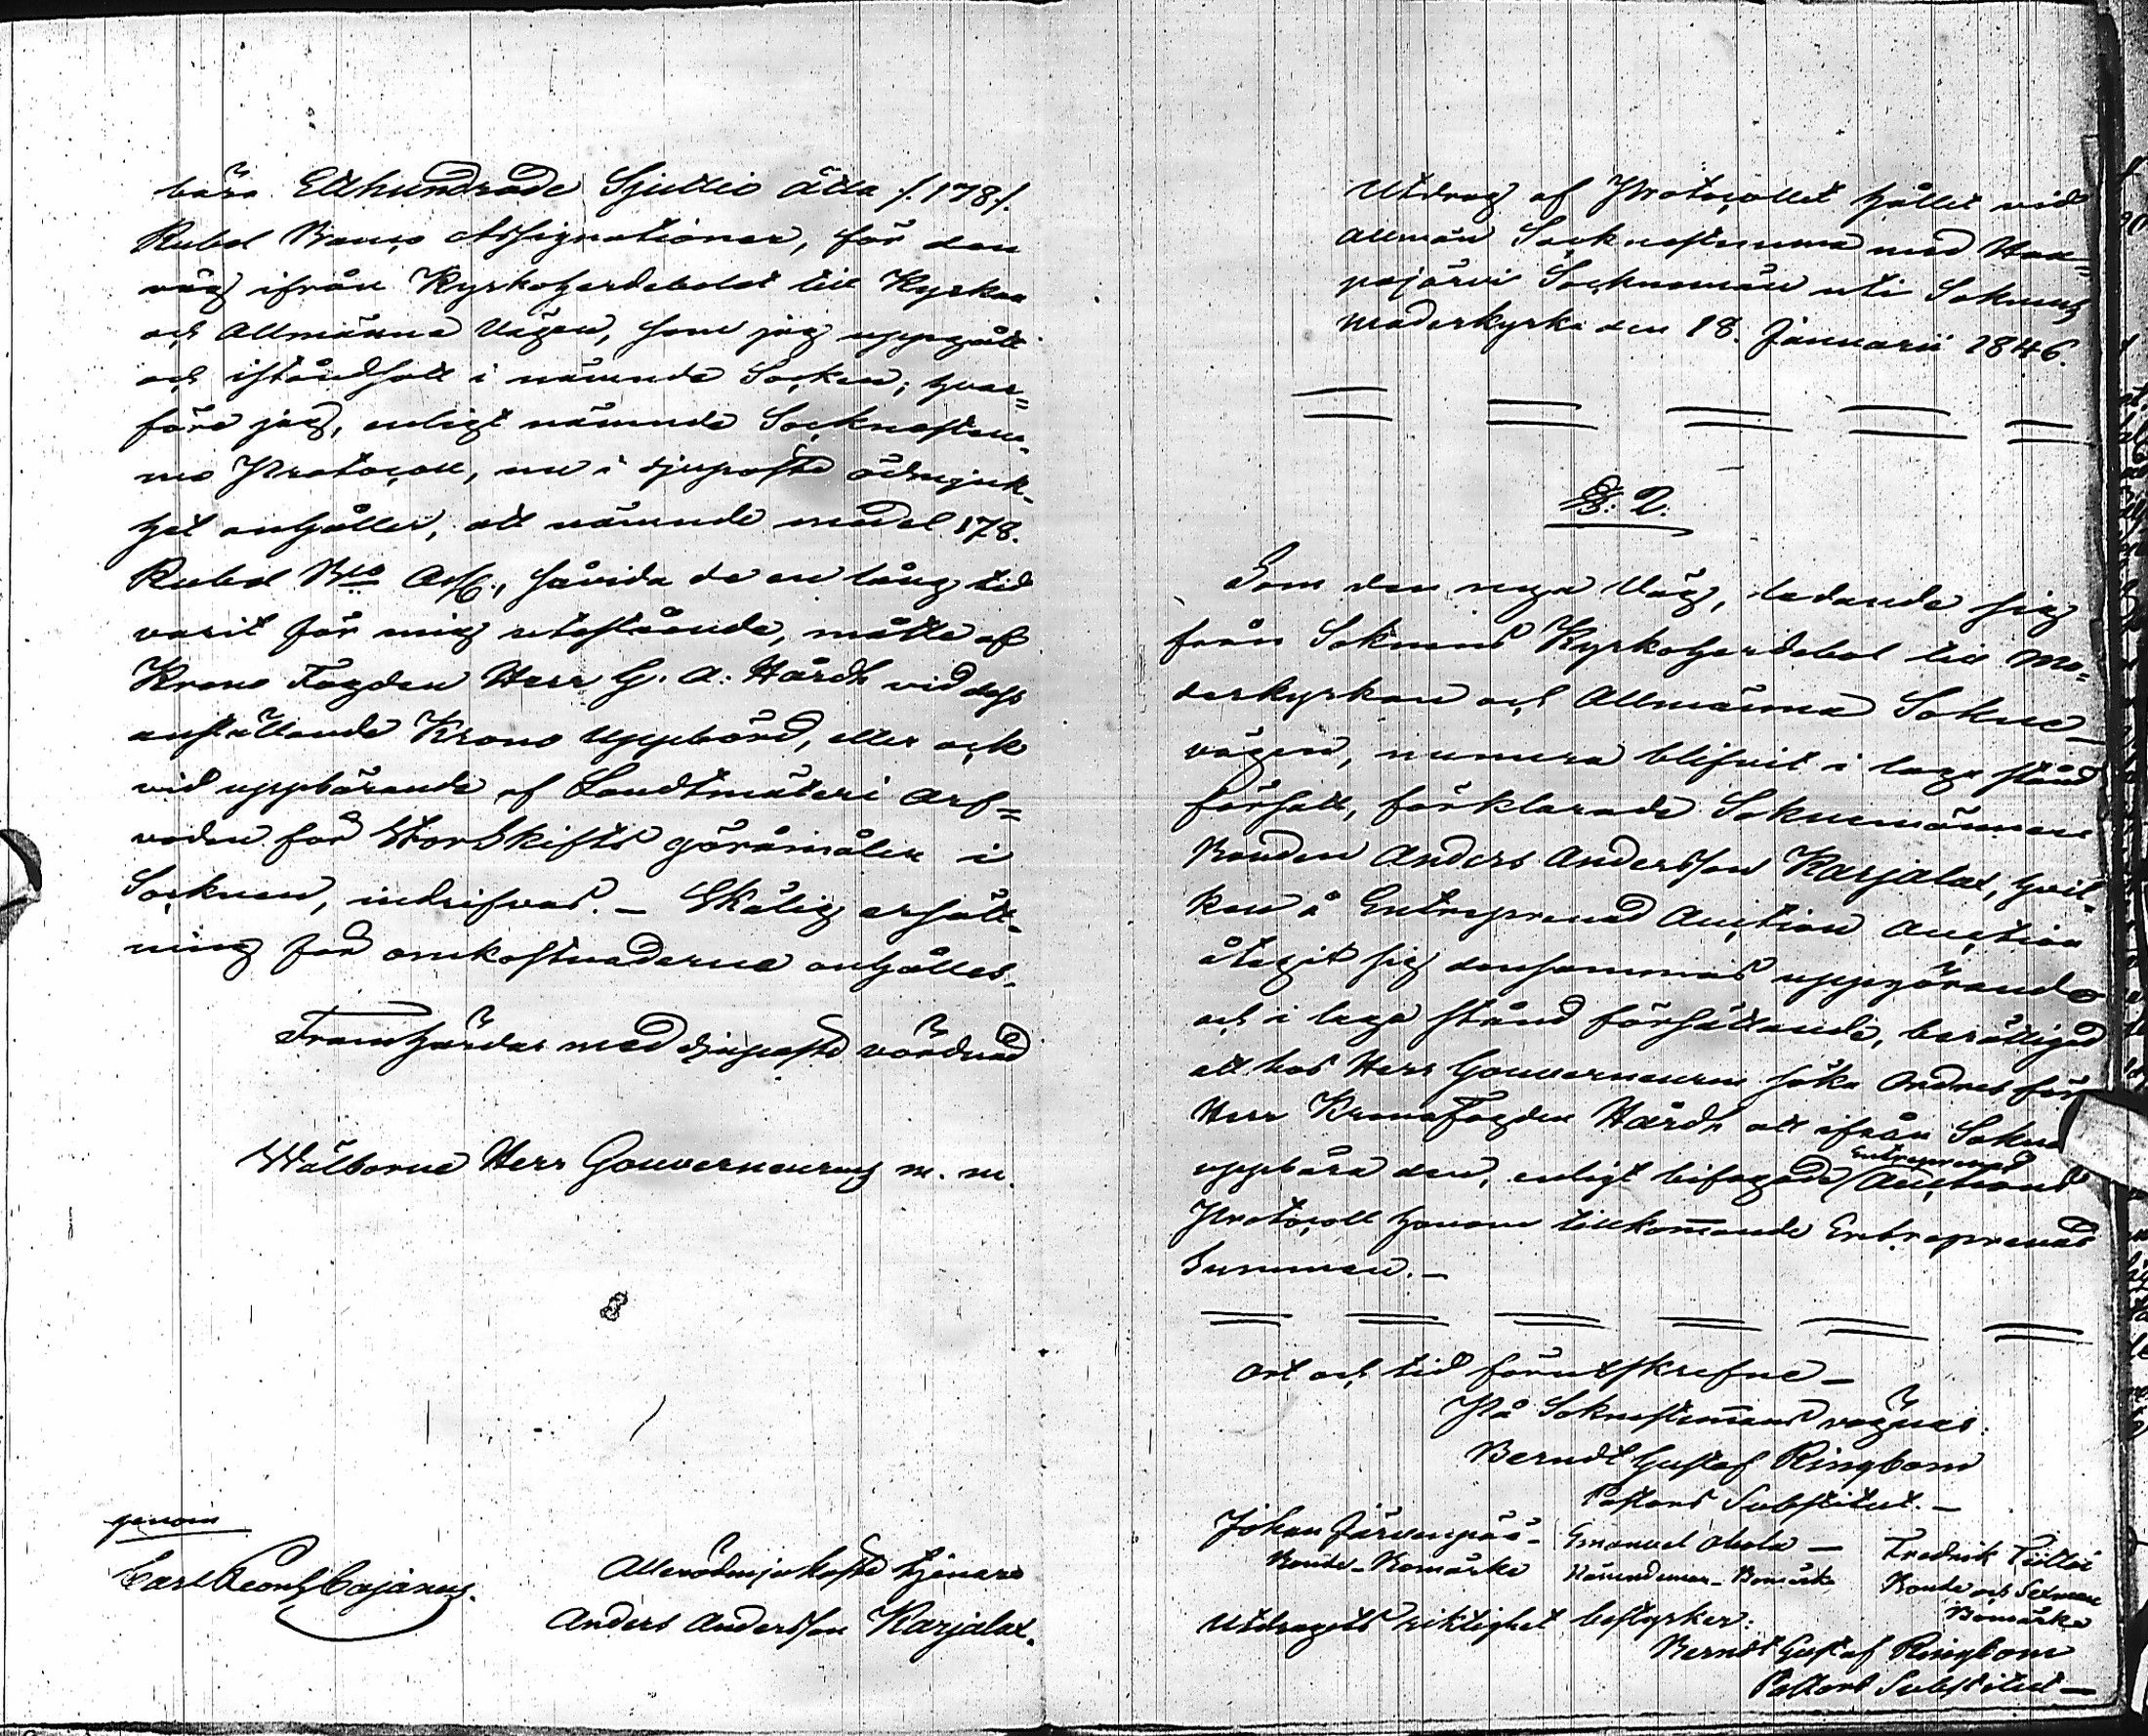 bära Etthundrade Sjuttio åtta /. 178 ./.
Rubel Banco Assignationer, för den
väg ifrån Kyrkoherdebolet till Kyrkan
och Allmänna Vägen, som jag uppgått
och iståndsatt i nämnde Socken; hvar=
före jag, enligt nämnde Sockneståm=
mo Protocoll, nu i djupaste ödmjuk-
het anhåller, att nämnde medel 178.
Rubel Bco Ass., såvida de en lång tid
varit för mig utestående, måtte af
Krono Fogden Herr G. A. Hårdh vid dess
anställande Krono Uppbörd, eller ock
vid uppbärande af Landtmäteri Arf=
voden för Storskifts göromålen i
Socknen, indrifvas. — Skälig ersätt-
ning för omkostnaderne anhålles.
Framhärdar med djupaste vördnad
Wälborne Herr Gouverneurens m. m.
genom
Carl Leonh Cajanus.
Allerödmjukaste tjenare
Anders Andersson Karjalax.
Utdrag af Protocollet hållet vid
Allmän Socknestemma med Haa=
pajärvi Socknemän uti Soknens
Moderkyrka den 18. Januarii 1846.
§. 2.
Som den nya Väg, ledande sig
från Soknens Kyrkoherdebol till Mo=
derkyrkan och Allmänna Sokne-
vägen, numera blifvit i laga stånd
försatt, förklarade Soknemännen
Bonden Anders Andersson Karjalax, hvil-
ken å Entreprenad Auction Auction
åtagit sig densammas uppgörande
och i laga stånd försättande, berättigad
att hos Herr Gouverneuren söka Ordres för
Herr Kronofogden Hårdh att ifrån Sokne
Entreprenad
uppbära den, enligt bifogade Auctions
Protocoll honom tillkommande Entreprenad
Summan. —
Ort och tid förutskrefne —
På Soknestemmans vägnar:
Berndt Gustaf Ringbom
Pastors Substitut. —
Johan Järvenpää - Emanuel Ahola — Fredrik
Bonde - Bomärke Nämndeman - Bomärke Bonde och Sexman
Bomärke
Utdragets riktighet bestyrker:
Berndt Gustaf Ringbom
Pastors Substitut —